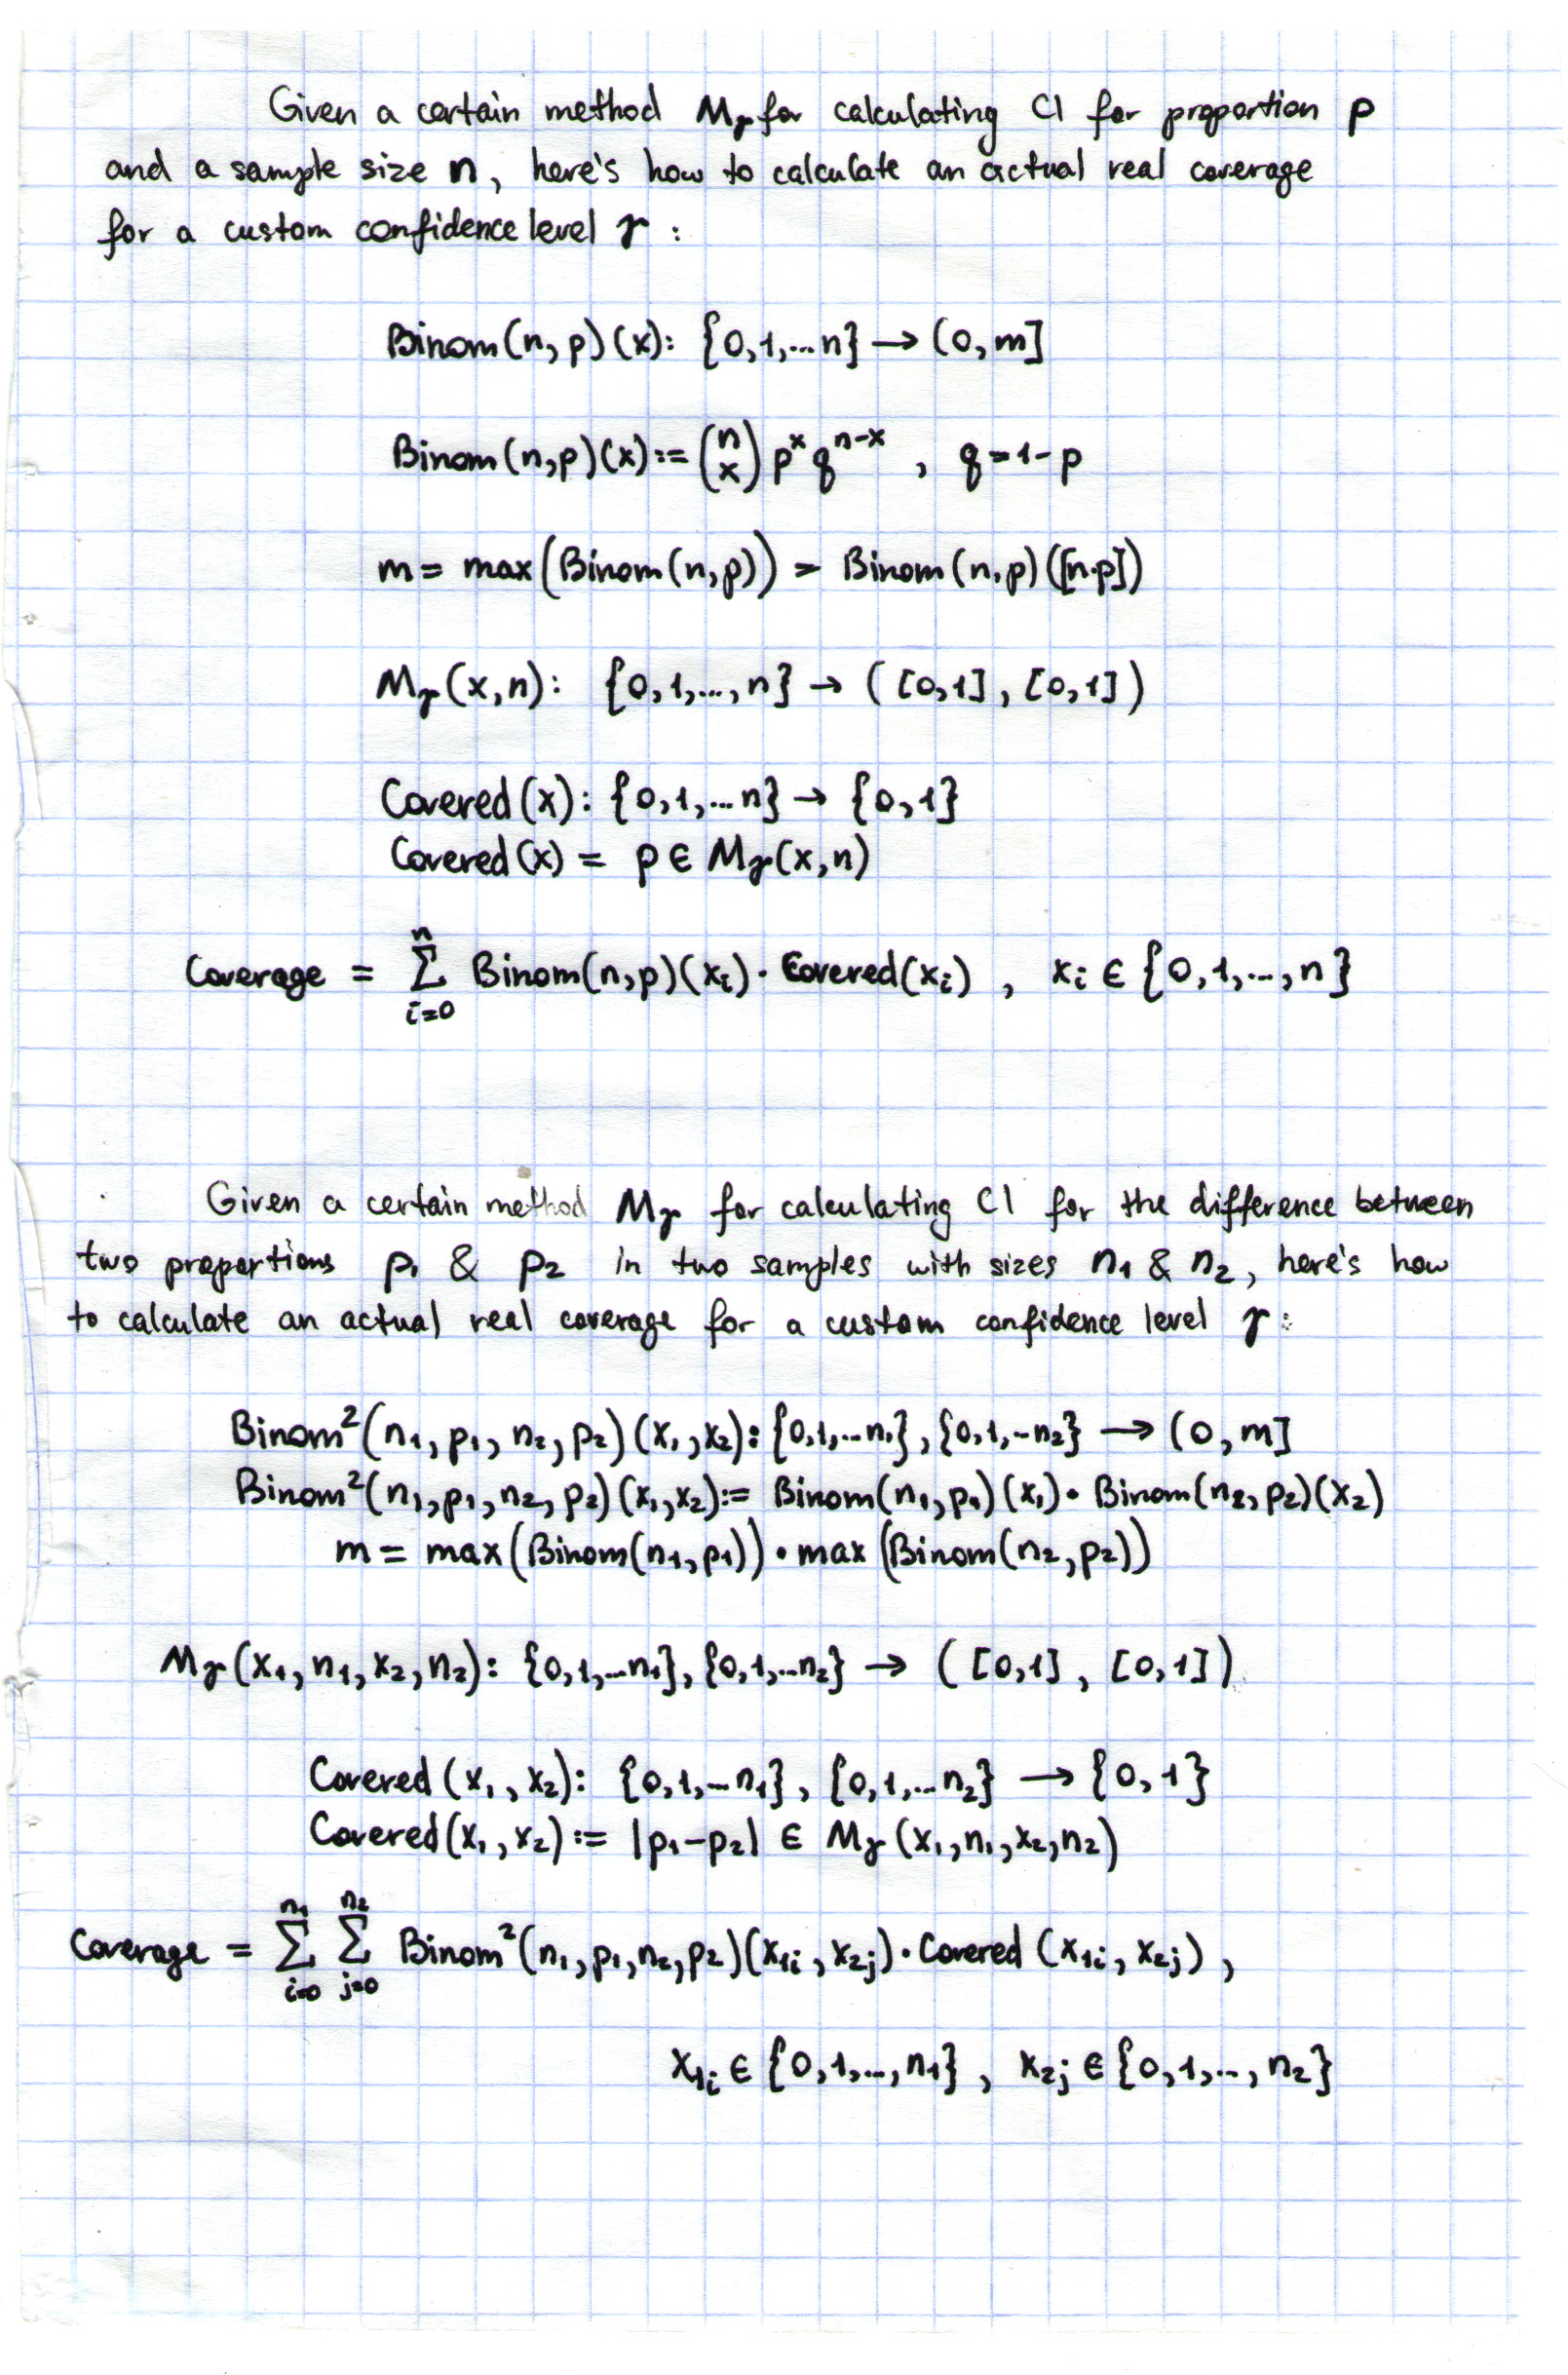 Given a certain method Mγ for calculating CI for proportion p
and a sample size n, here's how to calculate an actual real coverage
for a custom confidence level γ :
Binom(n, p)(x): {0,1,...n} → (0, m]
Binom(n,p)(x):= (n x) p^x q^(n-x) , q=1-p
m = max(Binom(n,p)) = Binom(n,p)([n·p])
Mγ(x,n): {0,1,...,n} → ([0,1], [0,1])
Covered(x): {0,1,...n} → {0,1}
Covered(x) = p ∈ Mγ(x,n)
Coverage = Σ_{i=0}^{n} Binom(n,p)(x_i) · Covered(x_i) , x_i ∈ {0,1,...,n}
Given a certain method Mγ for calculating CI for the difference between
two proportions p₁ & p₂ in two samples with sizes n₁ & n₂, here's how
to calculate an actual real coverage for a custom confidence level γ:
Binom²(n₁, p₁, n₂, p₂)(x₁,x₂): {0,1,...n₁}, {0,1,...n₂} → (0, m]
Binom²(n₁,p₁,n₂,p₂)(x₁,x₂):= Binom(n₁,p₁)(x₁) · Binom(n₂,p₂)(x₂)
m = max(Binom(n₁,p₁)) · max(Binom(n₂,p₂))
Mγ(x₁,n₁,x₂,n₂): {0,1,...n₁}, {0,1,...n₂} → ([0,1], [0,1])
Covered(x₁,x₂): {0,1,...n₁}, {0,1,...n₂} → {0,1}
Covered(x₁,x₂) := |p₁-p₂| ∈ Mγ(x₁,n₁,x₂,n₂)
Coverage = Σ_{i=0}^{n₁} Σ_{j=0}^{n₂} Binom²(n₁,p₁,n₂,p₂)(x₁ᵢ,x₂ⱼ) · Covered(x₁ᵢ,x₂ⱼ) ,
x₁ᵢ ∈ {0,1,...,n₁} , x₂ⱼ ∈ {0,1,...,n₂}